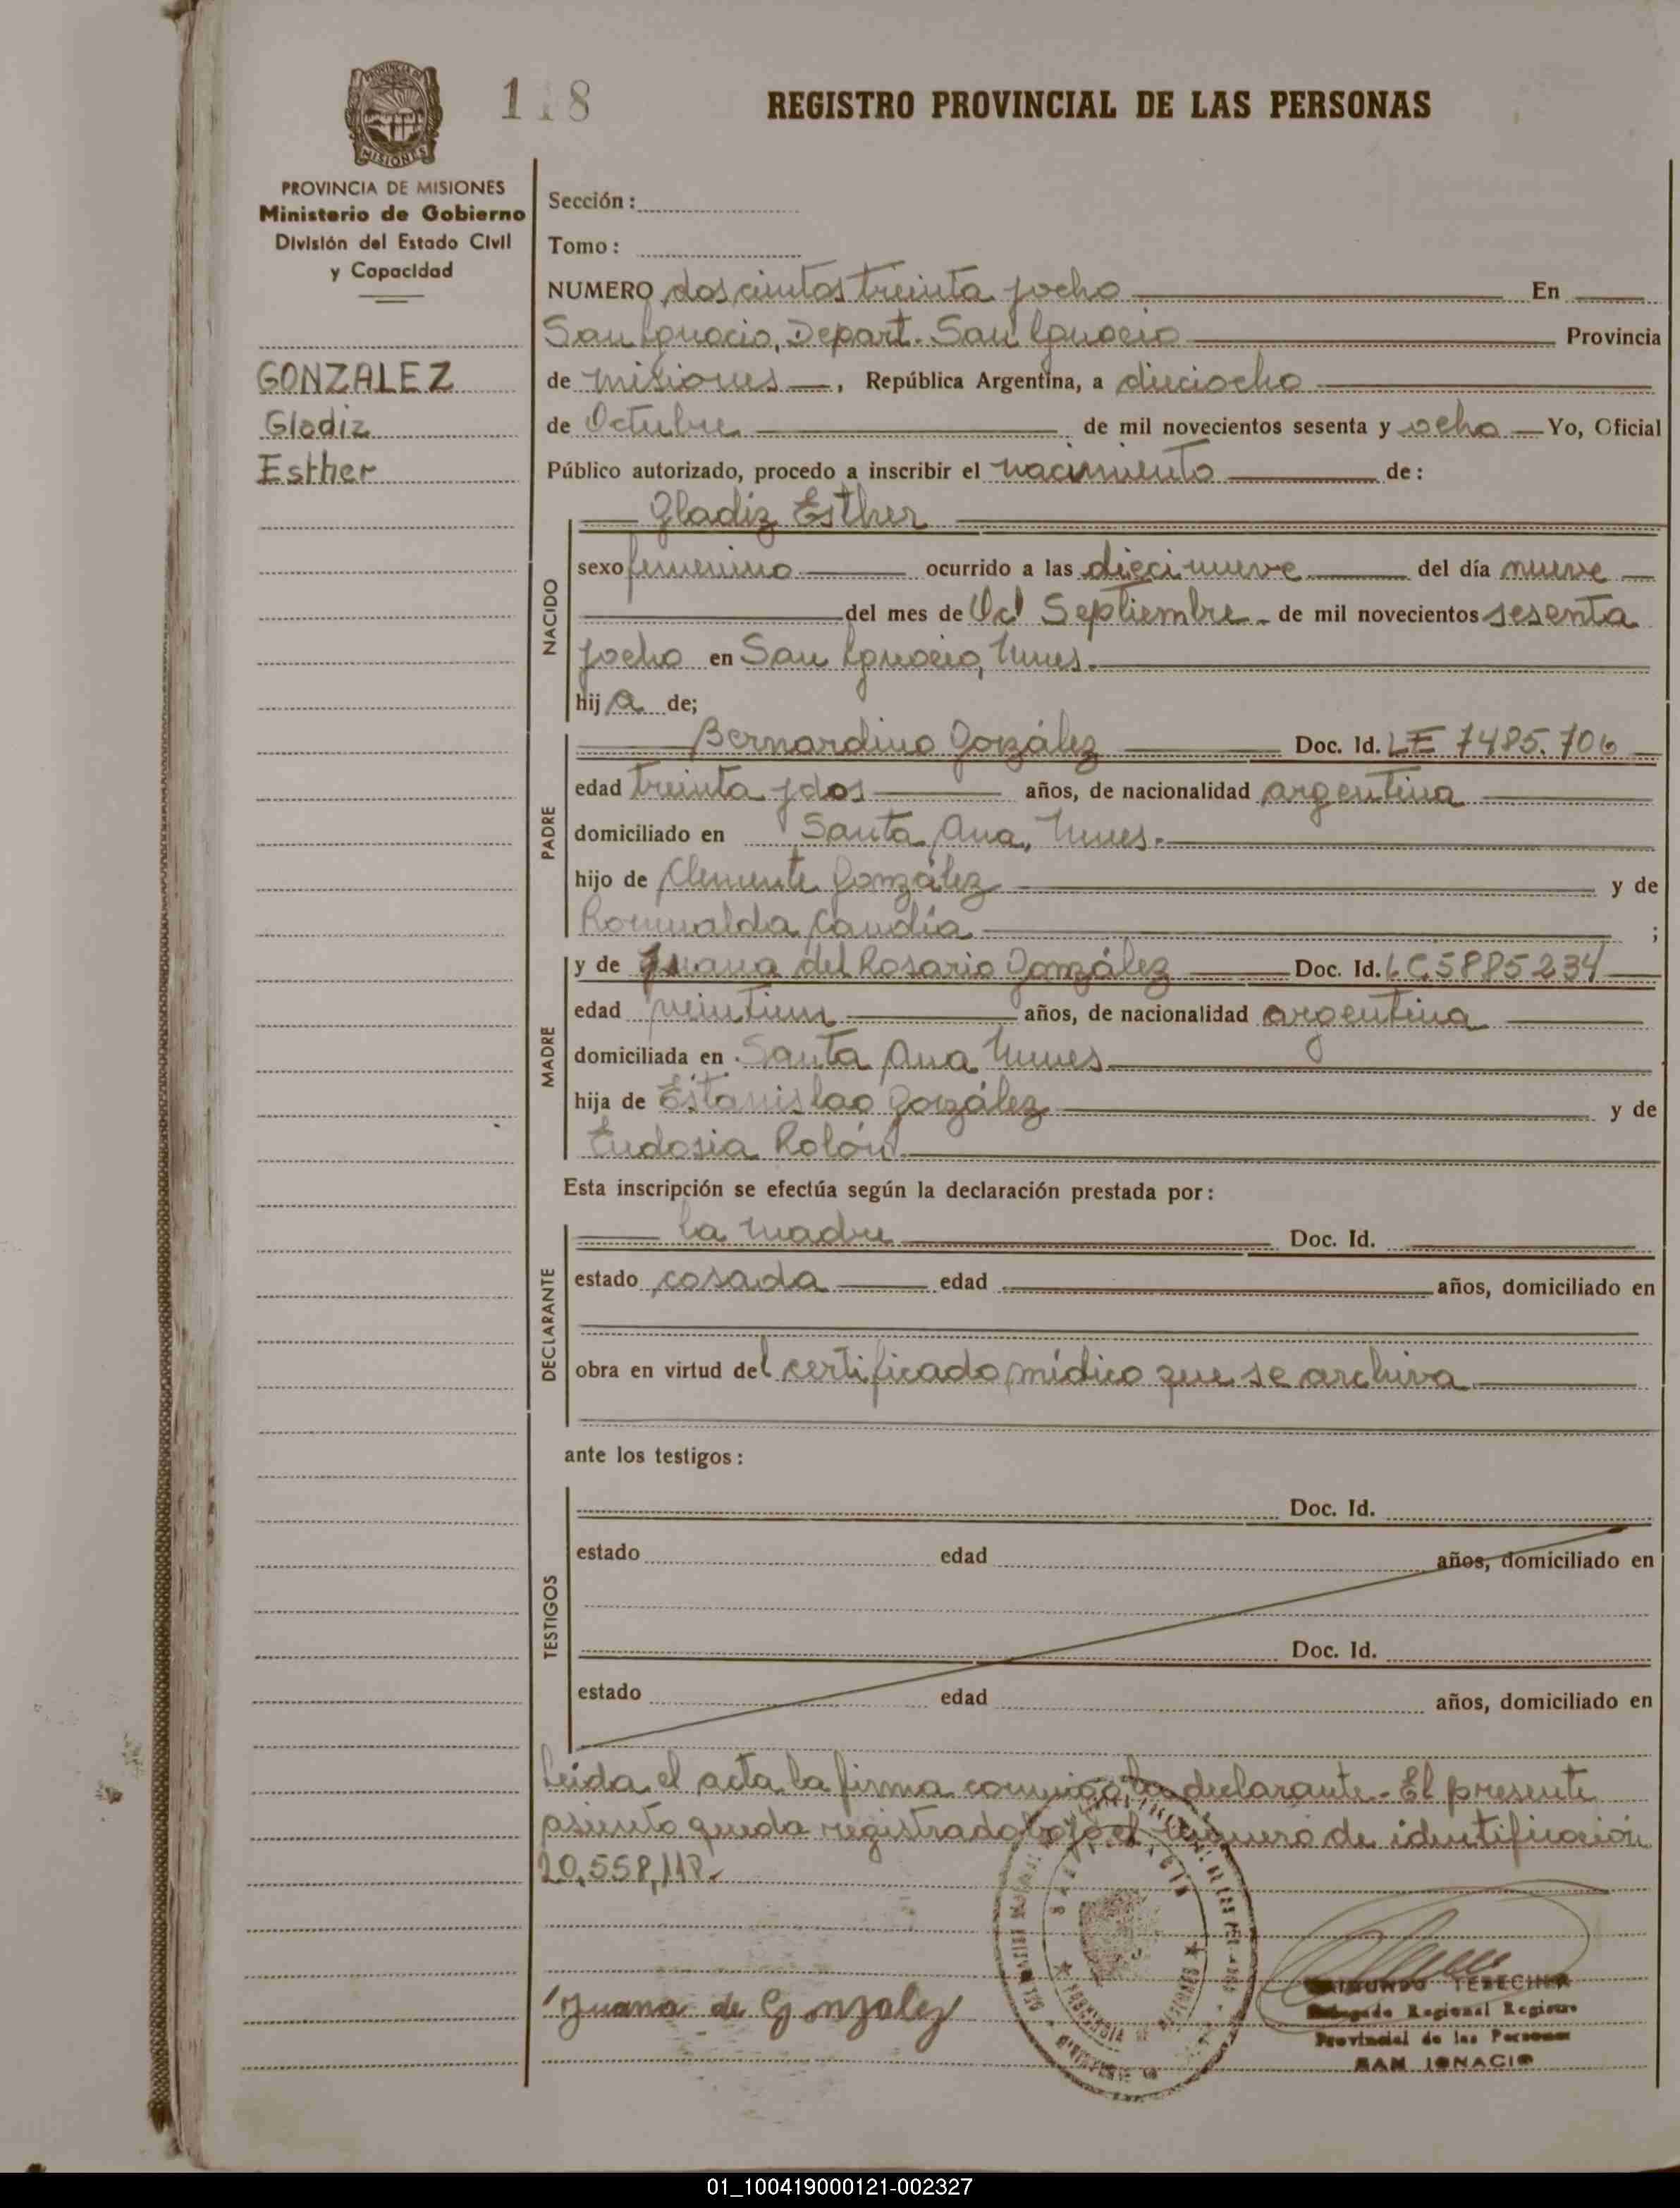 118
REGISTRO PROVINCIAL DE LAS PERSONAS
PROVINCIA DE
MISIONES
PROVINCIA DE MISIONES
Ministerio de Gobierno
División del Estado Civil
y Capacidad
GONZALEZ
Gladiz
Esther
Sección:
Tomo:
NUMERO doscientos treinta y ocho En
San Ignacio, Depart. San Ignacio Provincia
de Misiones, República Argentina, a dieciocho
de Octubre de mil novecientos sesenta y ocho Yo, Oficial
Público autorizado, procedo a inscribir el nacimiento de:
Gladiz Esther
NACIDO
sexo femenino ocurrido a las diecinueve del día nueve
del mes de Oc Septiembre de mil novecientos sesenta
y ocho en San Ignacio, Mnes.
hija de;
PADRE
Bernardino González Doc. Id. LE 7485.706
edad treinta y dos años, de nacionalidad argentina
domiciliado en Santa Ana, Mnes.
hijo de Clemente González y de
Romualda Candia ;
MADRE
y de Juana del Rosario González Doc. Id. LC 5885234
edad veintiun años, de nacionalidad argentina
domiciliada en Santa Ana Mnes
hija de Estanislao González y de
Eudosia Rolón
Esta inscripción se efectúa según la declaración prestada por:
DECLARANTE
la madre Doc. Id.
estado casada edad años, domiciliado en
obra en virtud del certificado médico que se archiva
ante los testigos:
TESTIGOS
Doc. Id.
estado edad años, domiciliado en
Doc. Id.
estado edad años, domiciliado en
Leida el acta la firma conmigo la declarante. El presente
asiento queda registrado bajo el número de identificación
20,558,118.
Juana de Gonzalez
RAIMUNDO
Delegado Regional Registro
Provincial de las Personas
SAN IGNACIO
01_100419000121-002327